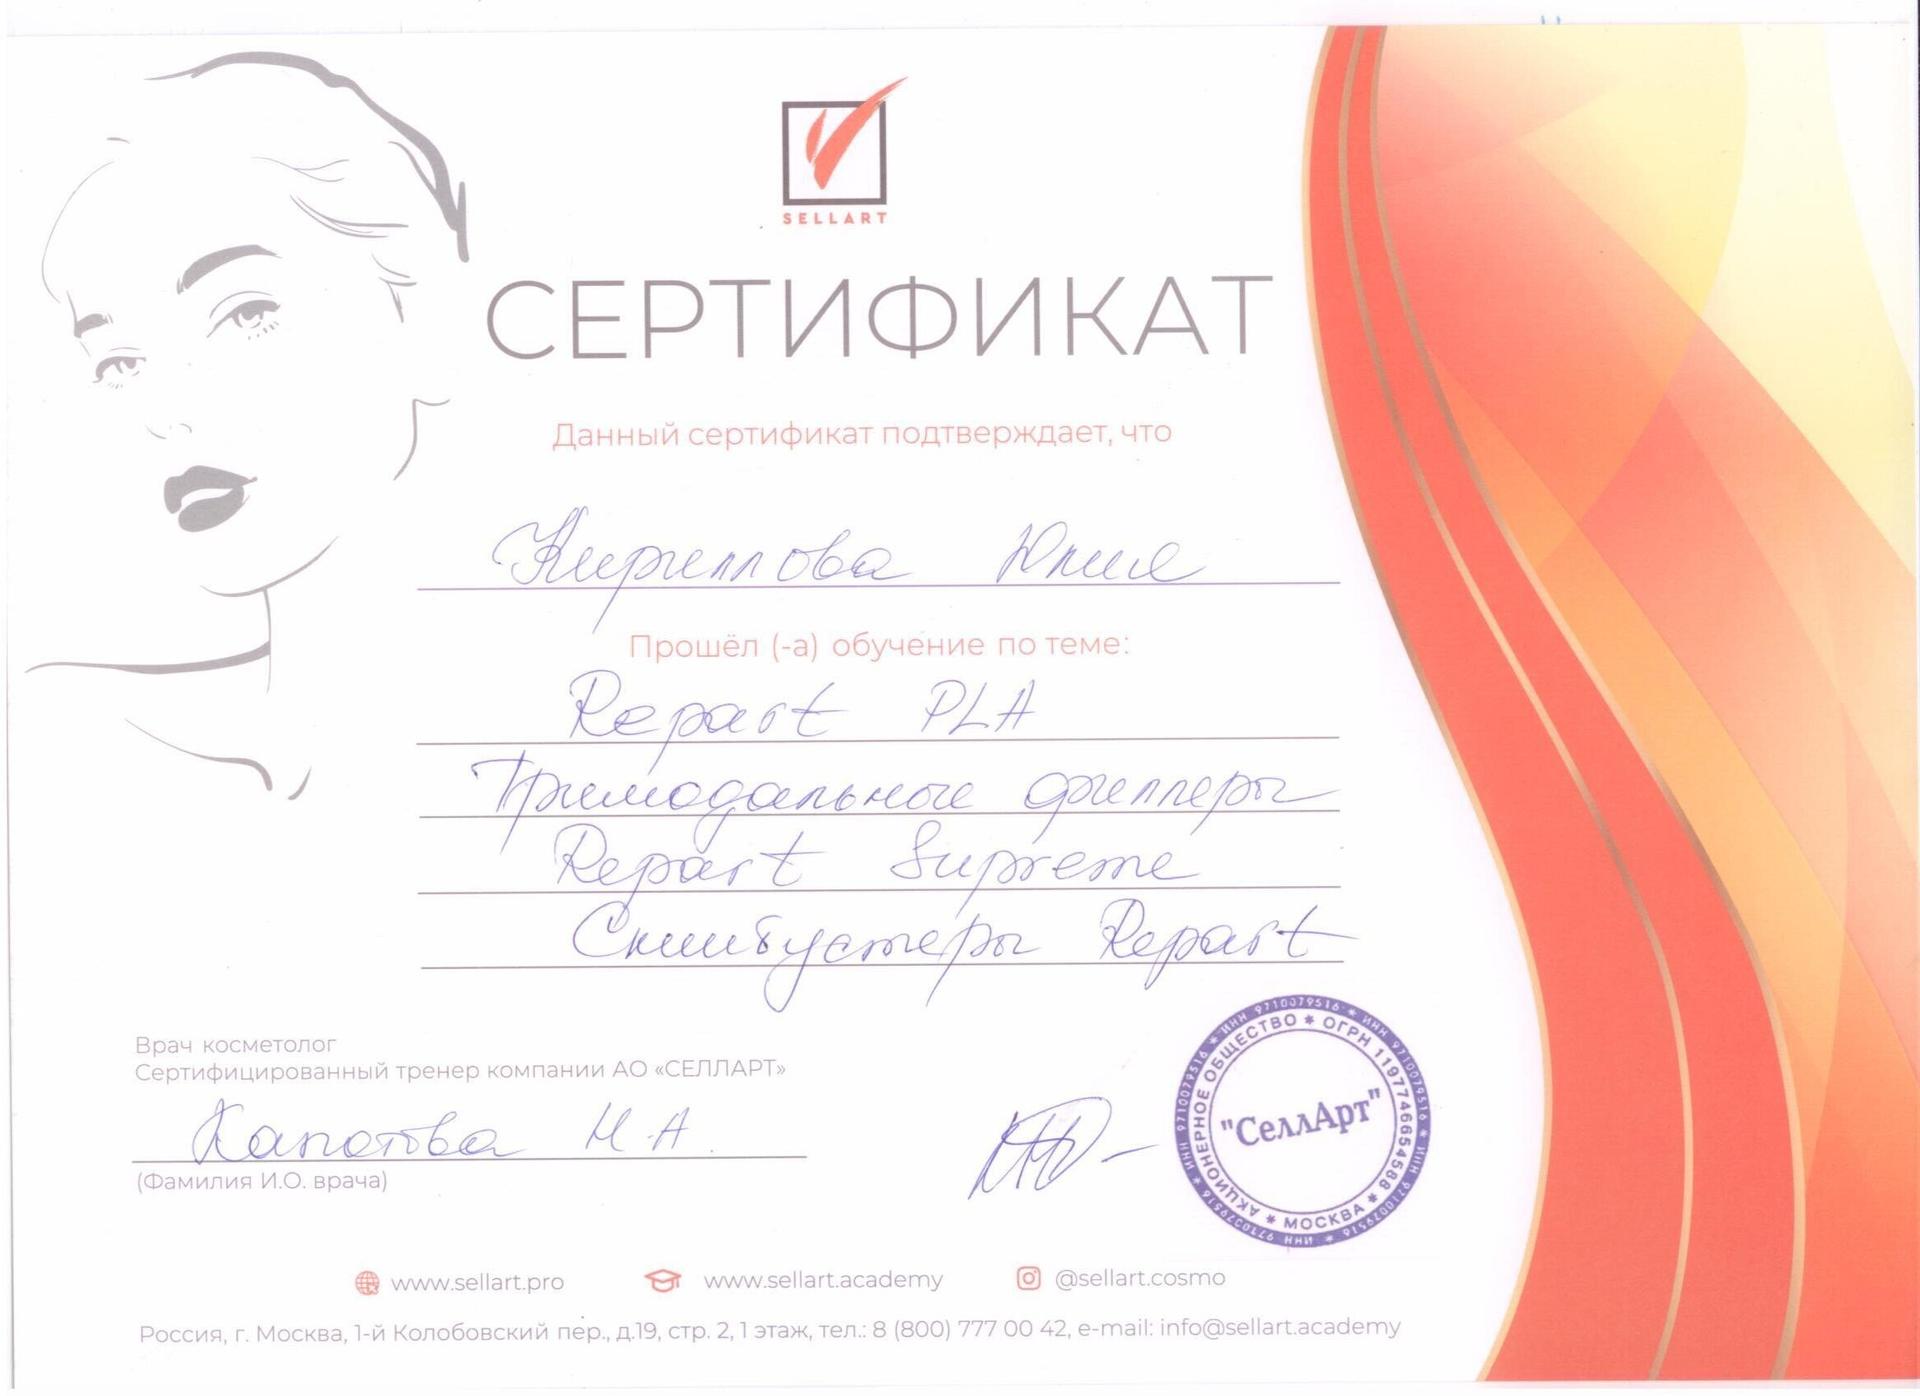 SELLART
СЕРТИФИКАТ
Данный сертификат подтверждает, что
Кириллова Юлия
Прошёл (-а) обучение по теме:
Repart PLA
Тримодальные филлеры
Repart Supreme
Скинбустеры Repart
Врач косметолог
Сертифицированный тренер компании АО «СЕЛЛАРТ»
Н.А.
(Фамилия И.О. врача)
ИНН 9710079516 * ИНН 9710079516 * ИНН 9710079516 * ИНН 9710079516 * ИНН 9710079516 *
АКЦИОНЕРНОЕ ОБЩЕСТВО * ОГРН 1197746654588 * МОСКВА *
"СеллАрт"
www.sellart.pro www.sellart.academy @sellart.cosmo
Россия, г. Москва, 1-й Колобовский пер., д.19, стр. 2, 1 этаж, тел.: 8 (800) 777 00 42, e-mail: info@sellart.academy